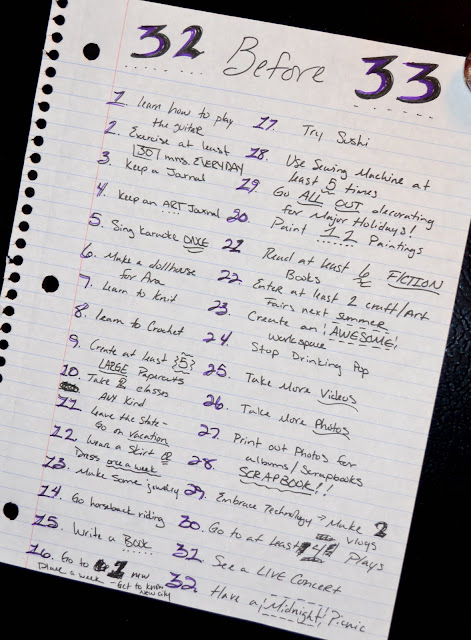 32 Before 33
1. learn how to play
the guitar
2. Exercise at least
30 mins. EVERYDAY
3. Keep a Journal
4. Keep an ART Journal
5. Sing karaoke ONCE
6. Make a dollhouse
for Ava
7. Learn to Knit
8. Learn to Crochet
9. Create at least {5}
LARGE Papercuts
10. Take 2 classes
ANY kind
11. Leave the State -
Go on Vacation
12. Wear a Skirt OR
Dress once a week
13. Make some jewelry
14. Go horseback riding
15. Write a Book
16. Go to 1 new
Place a week - Get to know
New city
17. Try Sushi
18. Use Sewing Machine at
least 5 times
19. Go ALL OUT decorating
for Major Holidays!
20. Paint 12 Paintings
21. Read at least 6 FICTION
Books
22. Enter at least 2 craft/Art
Fairs next summer
23. Create an AWESOME!
Workspace
24. Stop Drinking Pop
25. Take More Videos
26. Take More Photos
27. Print out Photos for
albums/Scrapbooks
28. SCRAPBOOK!!
29. Embrace Technology → Make 2
Vlogs
30. Go to at least 4 Plays
31. See a LIVE Concert
32. Have a Midnight Picnic